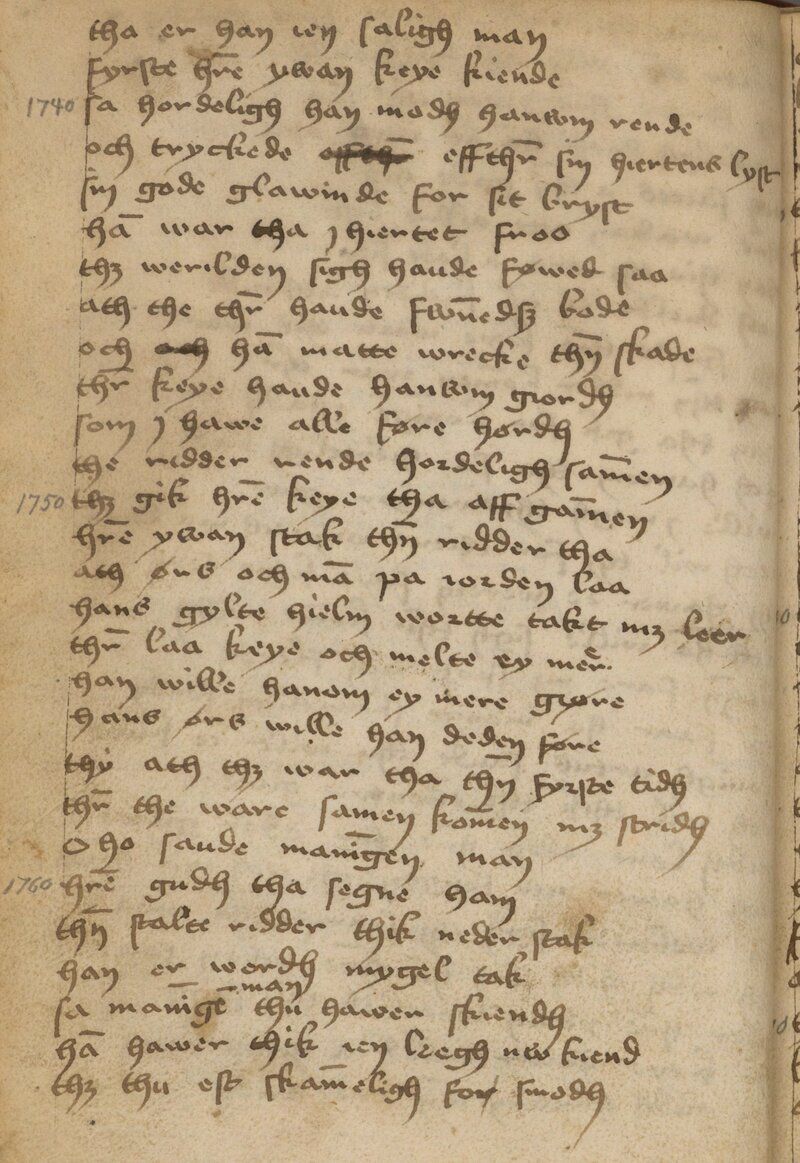 tha er han ien saligh man
fyrste hr̄e ywan keye kiende
1740 sa hordeligh han modh hanwm rende
och tryckede effthr̄ sin hiertens lyst
sin gode glawinde for sit bryst
hā war tha j hiertet froo
thȝ werilden sigh haude føwed saa
ath the thr̄ haude fwn̄edß bode
och hā matte wrecke thn̄ skade
thr̄ keye haude hanwm giordh
som j hawe alle føre hørdh
the ridder rende hordeligh sam̄en
1750 thȝ gik hr̄e keye tha aff gam̄en
hr̄e ywan stak thn̄ ridder tha
ath ørs och mā pa iorden laa
hans gylte hielm wortte takt mȝ leer
thr̄ laa keye och melte ey mer̄
han wille hanom ey mere giøre
hans ørs wille han deden føre
thy ath thȝ war tha thn̄ fyrste tidh
thr̄ the ware samen kom̄en mȝ stridh
O ho saude man̄igen man
1760 hr̄e gudh tha segne ham
thn̄ stalte ridder thik neder stak
han er wordh mygel tak
sa man̄igē man thu hawer skiendh
hā hawer thik ien leegh nw kiend
thȝ thu est skam̄eligh for smodh